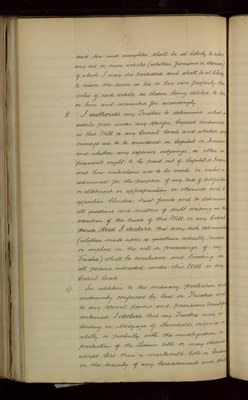 said son and daughter shall be at liberty to select
any one or more articles (whether furniture or otherwise)
of which I may die possessed and shall be at liberty
to retain the same as his or her own property the
value of such articles so chosen being added to his
or hers and accounted for accordingly
8. I authorise my Trustees to determine what
articles pass under any specific bequest contained
in this Will or any Codicil hereto and whether any
moneys are to be considered as Capital or Income
and whether any expenses outgoings or other
payments ought to be paid out of Capital or Income
and how valuations are to be made or value
determined for the purpose of any sale
or allotment or appropriation or otherwise and to
apportion blended Trust funds and to determine
all questions and matters of doubt arising in the
execution of the trusts of this Will or any Codicil
hereto And I declare that every such determination
(whether made upon a question actually raised
or implied in the acts or proceedings of my
Trustees) shall be conclusive and binding on
all persons interested under this Will or any
Codicil hereto
9. In addition to the ordinary protection and
indemnity conferred by law on Trustees and
to any special powers and provisions herein
contained I declare that my Trustees may in
lending on Mortgage of Leasehold
wholly or partially with the investigation or
production of the lessors title or may otherwise
accept less than a marketable title
on the security of any hereditaments and